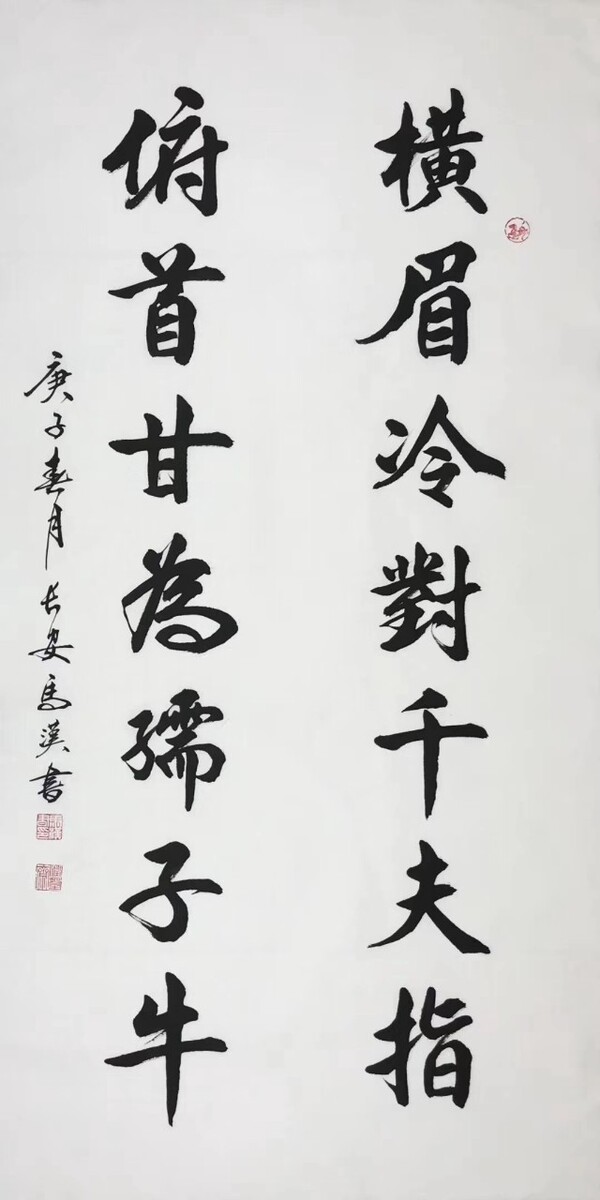 橫眉冷對千夫指
俯首甘為孺子牛
庚子春月长安馬漢書